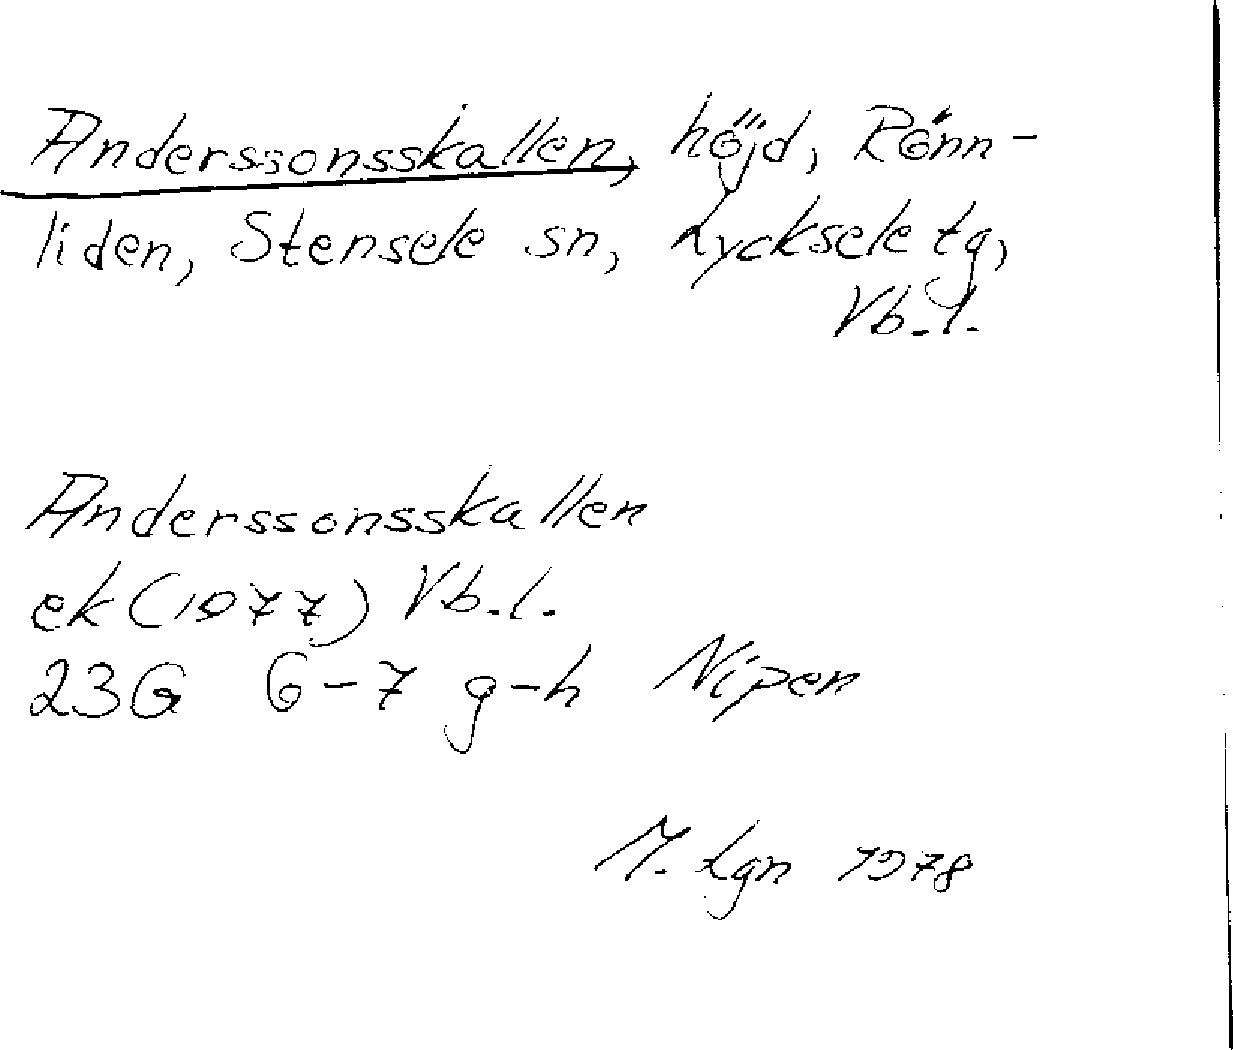 Anderssonsskallen, höjd, Rönn-
liden, Stensele sn, Lycksele tg,
Vb.l.
Anderssonsskallen
ek (1977) Vb.l.
23G 6-7 g-h Nipen
M. Lgn 1978